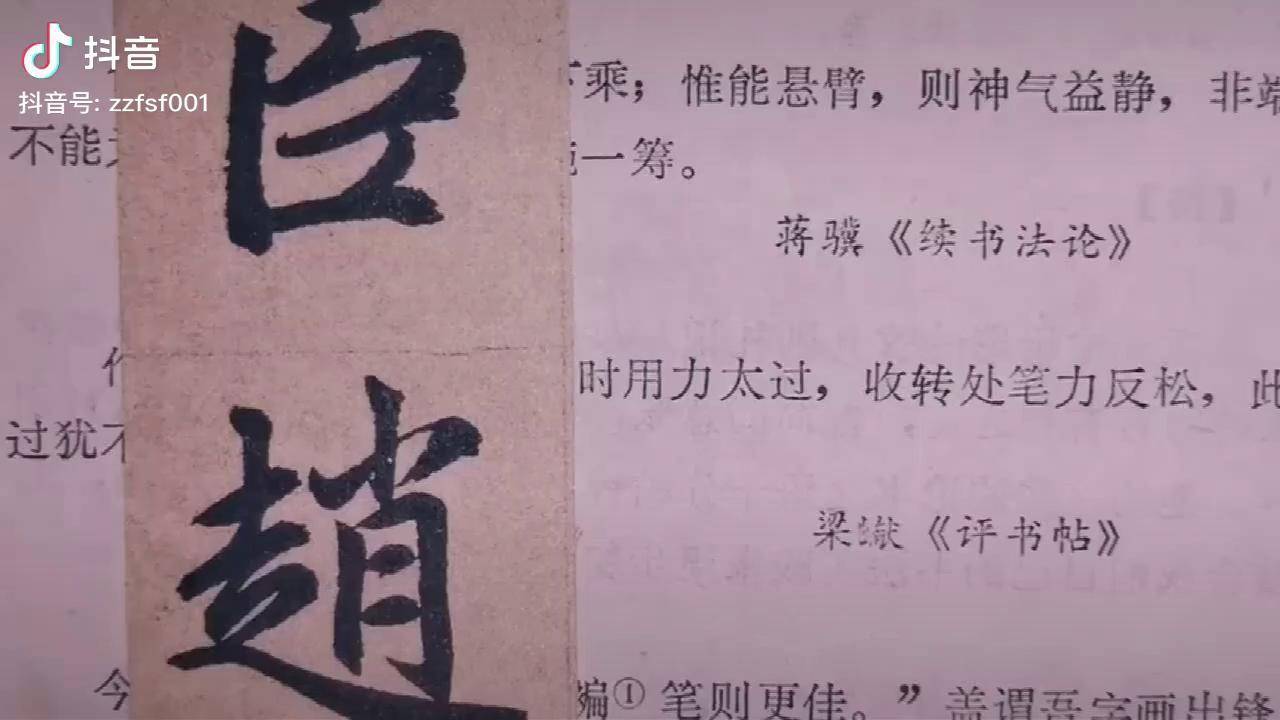 抖音
抖音号: zzfsf001
臣
趙
乘；惟能悬臂，则神气益静，非端
不能
一筹。
蒋骥《续书法论》
时用力太过，收转处笔力反松，此
过犹不
梁巘《评书帖》
今
①笔则更佳。”盖谓吾字画出锋